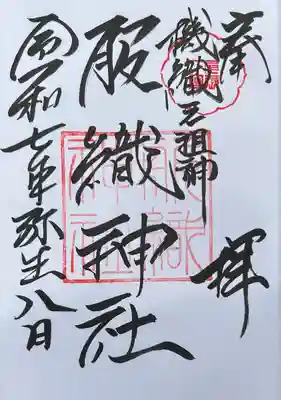 奉拝
機織元祖神
服織神社
令和七年弥生八日